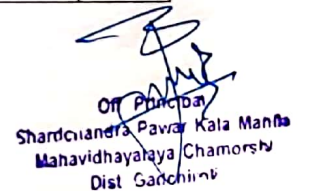 Off Principal
Shardchandra Pawar Kala Mahila
Mahavidhayalaya Chamorshy
Dist Gadchiroli